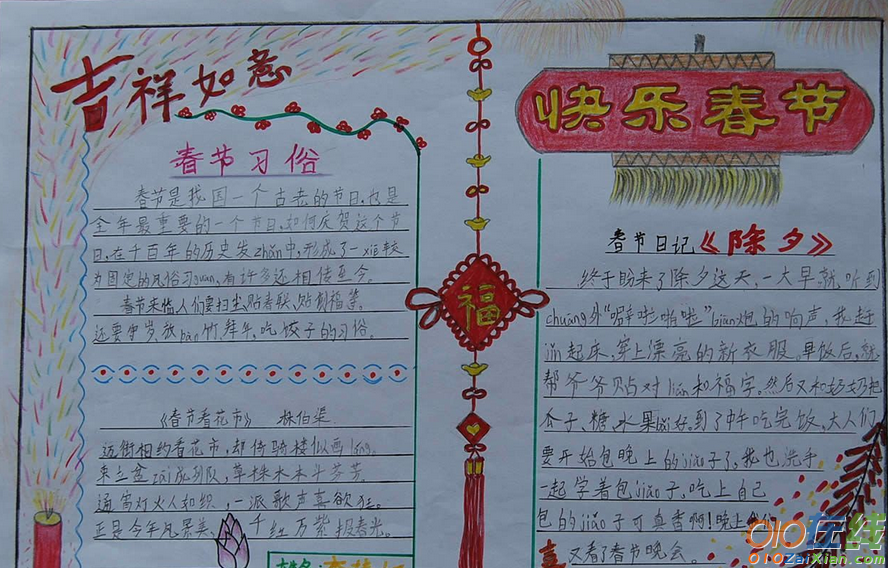 吉祥如意
春节习俗
春节是我国一个古老的节日,也是
全年最重要的一个节日,如何庆贺这个节
日,在千百年的历史发zhǎn中,形成了一xiē较
为固定的风俗习guàn,有许多还相传至今。
春节来临,人们要扫尘,贴春联,贴福等。
还要守岁放bào竹,拜年,吃饺子的习俗。
《春节看花市》 林伯渠
迈街相约看花市,却倚骑楼似画
束立盆zāi成列队,草株木本斗芬芳。
通宵灯火人如织,一派歌声喜欲狂。
正是今年风景美,千红万紫报春光。
福
快乐春节
春节日记《除夕》
终于盼来了除夕这天,一大早就听到
chuāng外“噼啦啪啦”biān炮的响声,我赶
jǐn起床,穿上漂亮的新衣服。早饭后,就
帮爷爷贴对lián和福字。然后又和奶奶把
瓜子、糖、水果bǎi好。到了中午吃完饭,大人们
要开始包晚上的jiǎo子了,我也洗手
一起学着包jiǎo子,吃上自己
包的jiǎo子可真香啊!晚上我们
又看了春节晚会。
喜
010在线
010ZaiXian.com